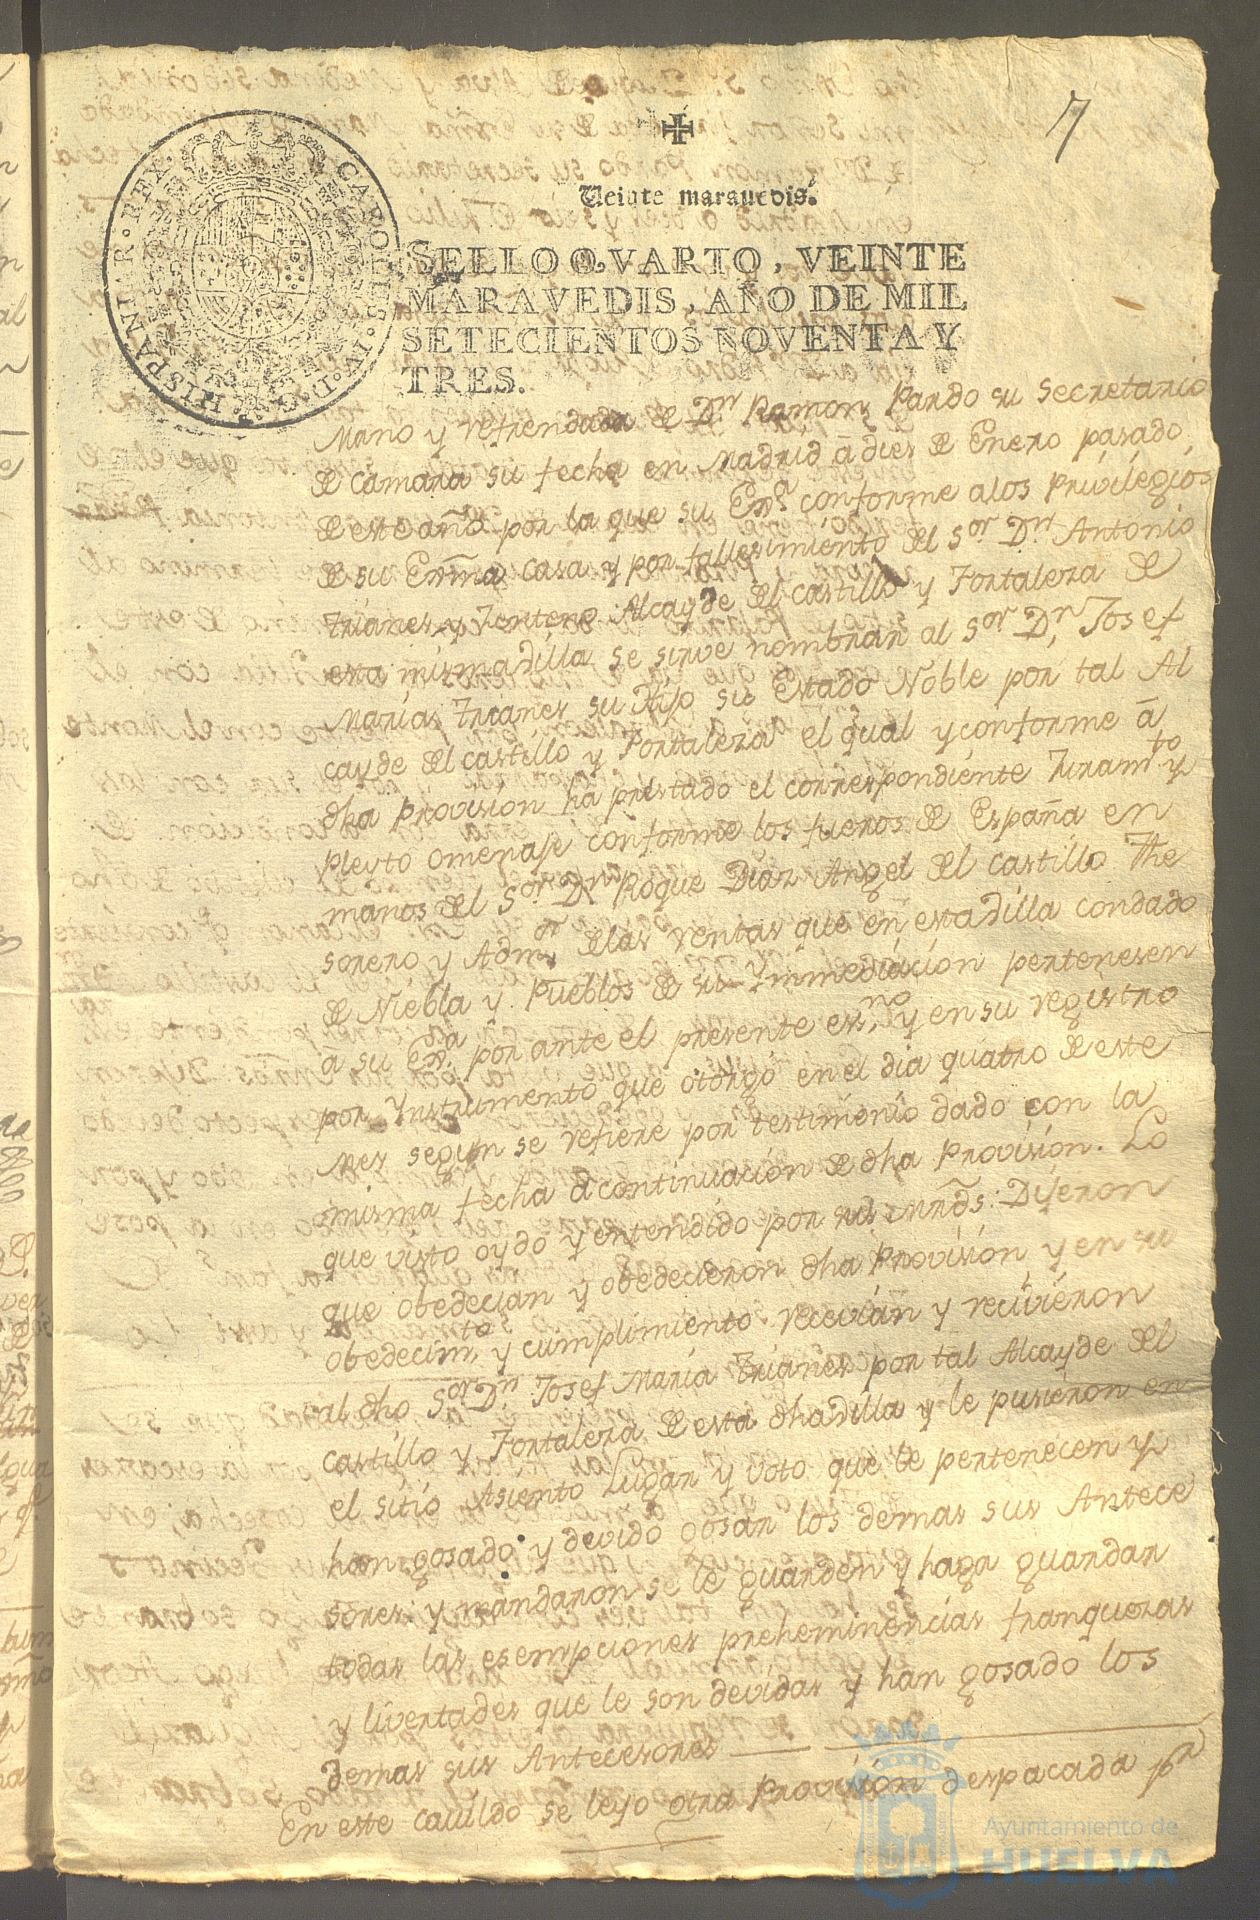 7
Veinte maravedis.
SELLO QVARTO, VEINTE
MARAVEDIS, AÑO DE MIL
SETECIENTOS NOVENTA Y
TRES.
CAROLUS · IV · D · G · HISPANIAR · REX ·
Mano y refrendada de Dn Ramon Pardo su Secretario
de Camara su fecha en Madrid â dies de Enero pasado
de este año por la que su Exa conforme alos Privilegios
de su Exma casa y por fallesimiento del Sor Dn Antonio
Trianes y Zenteno Alcayde del Castillo y Fortaleza de
esta misma Villa se sirve nombrar al Sor Dn Josef
Marias Trianes su Hijo su Estado Noble por tal Al
cayde del castillo y Fortaleza el qual y conforme â
dha Provision ha prestado el correspondiente Juramto y
Pleyto omenaje conforme los fueros de España en
manos del Sor Dn Roque Diaz Angel del Castillo The
sorero y Admor delas rentas que en esta Villa condado
de Niebla y Pueblos de su Ynmediacion pertenesen
â su Exa por ante el presente esno y en su registro
por Ynstrumento que otorgó en el dia quatro de este
mes segun se refiere por testimonio dado con la
misma fecha â continuacion de dha Provision. Lo
que visto oydo y entendido por sus mrds: Dijeron
que obedecian y obedecieron dha Provision y en su
obedecimto y cumplimiento recevian y recivieron
al dho Sor Dn Josef Maria Trianes por tal Alcayde del
castillo y Fortaleza de esta dha Villa y le pusieron en
el sitio Asiento Lugar y voto que le pertenecen y
han gosado y devido gosar los demas sus Antece
sores: y mandaron se le guarden y hagn guardar
todas las esempciones preheminencias franquezas
y livertades que le son devidas y han gosado los
demas sus Antecesores
En este cavildo se leyo otra Provision despacada pr
Ayuntamiento de
HUELVA